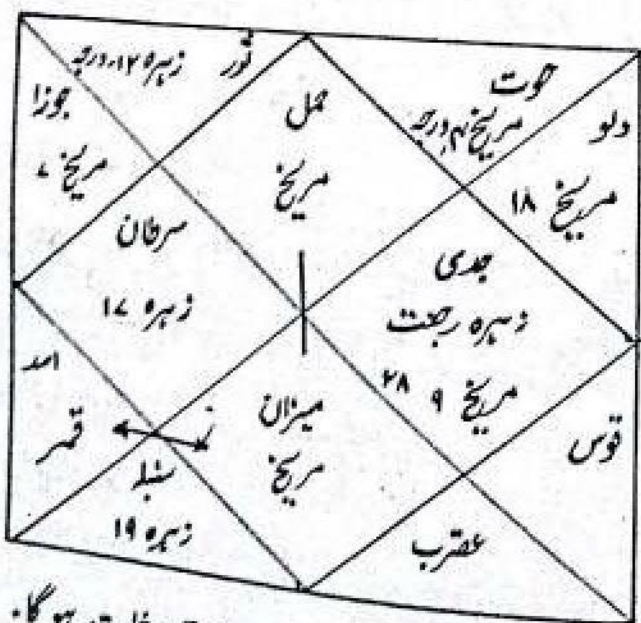 ثور زہرہ ۱۲ درجہ
جوزا
مریخ ۷
حمل
مریخ
حوت
مریخ ۴ درجہ
دلو
مریخ ۱۸
سرطان
زہرہ ۱۷
جدی
زہرہ رجعت
مریخ ۹ ۲۸
اسد
قمر
ز
سنبلہ
زہرہ ۱۹
میزان
مریخ
قوس
عقرب
ہو گا۔